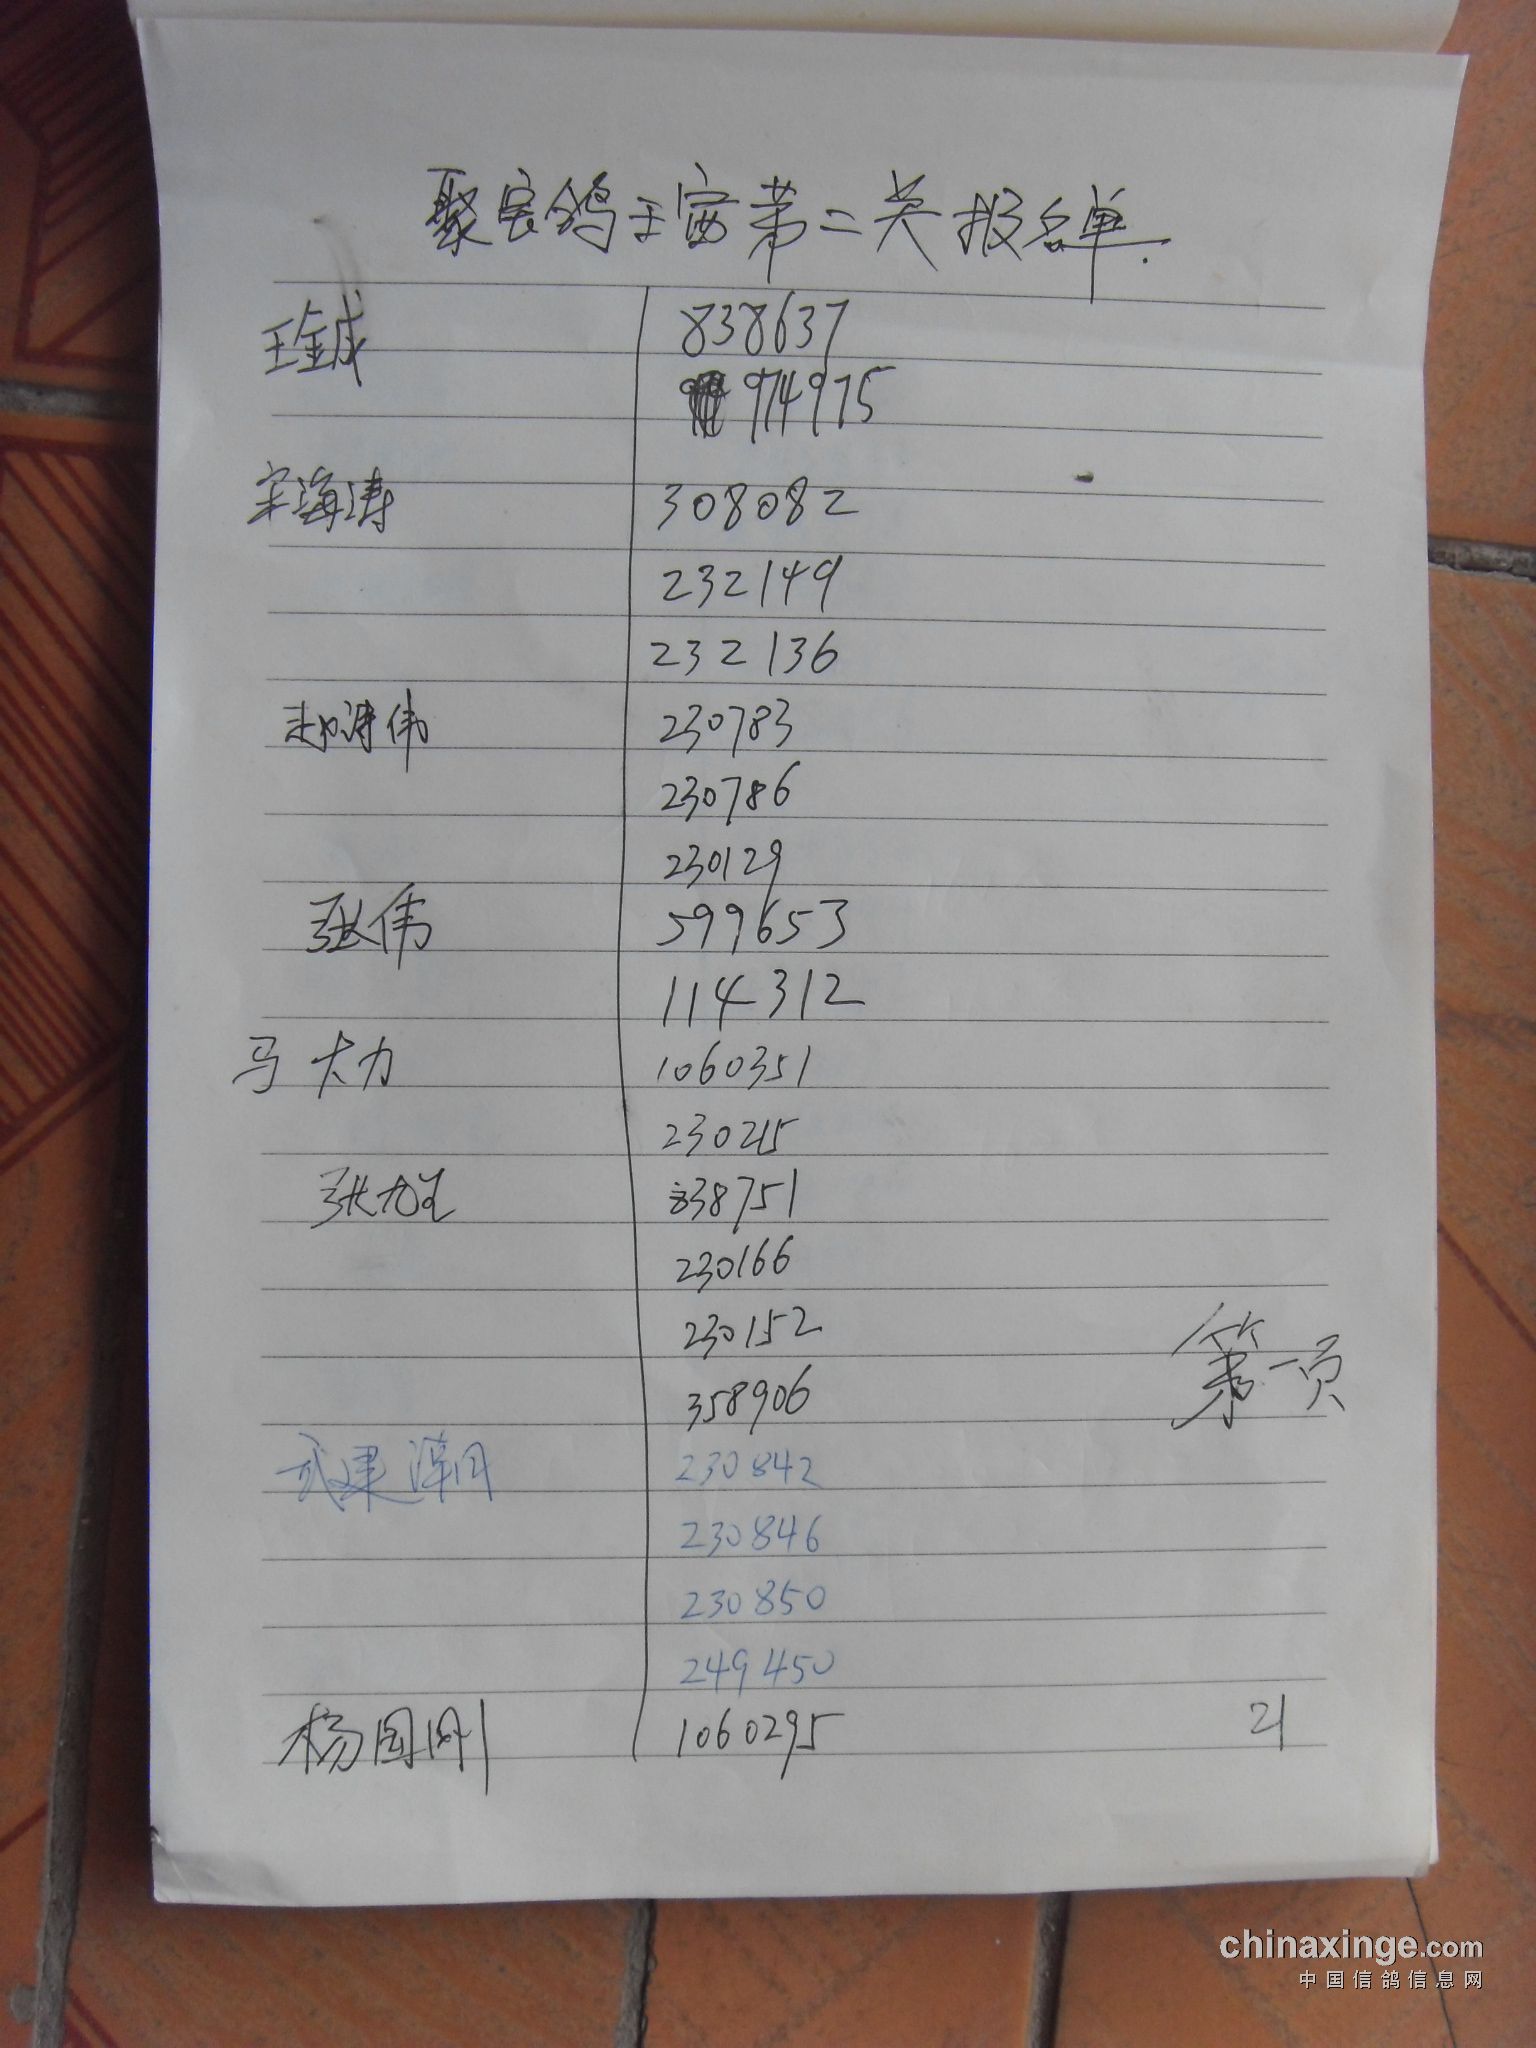 聚宝鸽王赛第二关报名单.
王金成 838637
974975
宋海涛 308082
232149
232136
赵涛伟 230783
230786
230129
张伟 599653
114312
马大力 1060351
230215
张龙 838751
230166
230152
358906
第一页
武建 230842
230846
230850
249450
杨国刚 1060295 21
chinaxinge.com
中国信鸽信息网